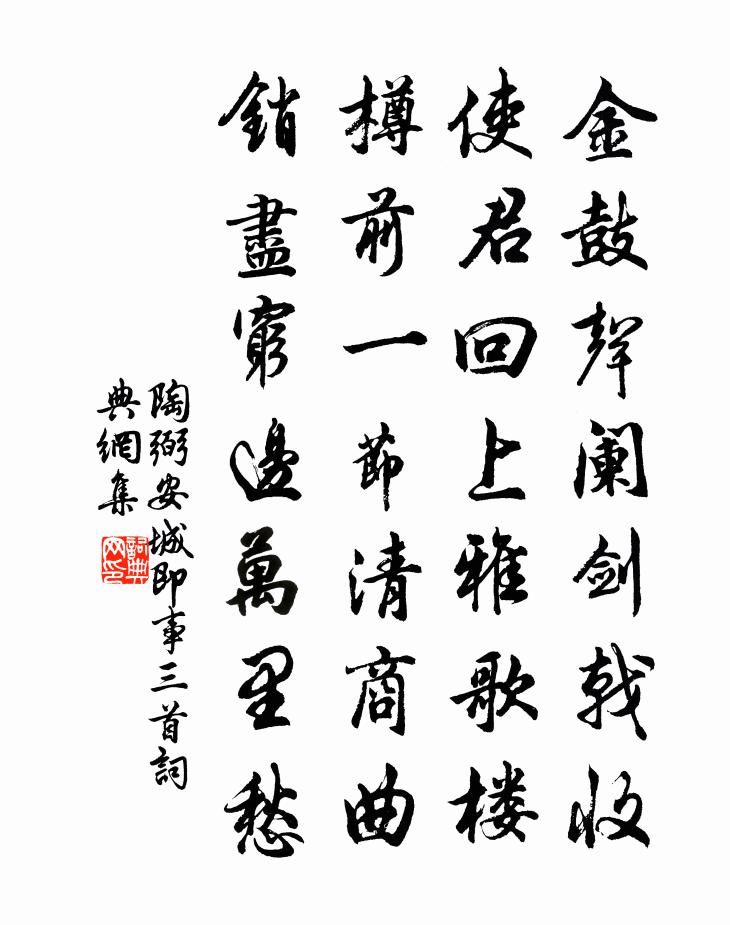 金鼓聲阑剑戟收
使君回上雅歌楼
樽前一節清商曲
銷盡窮邊萬里愁
陶弼安城即事三首詞
典網集
詞典
网印